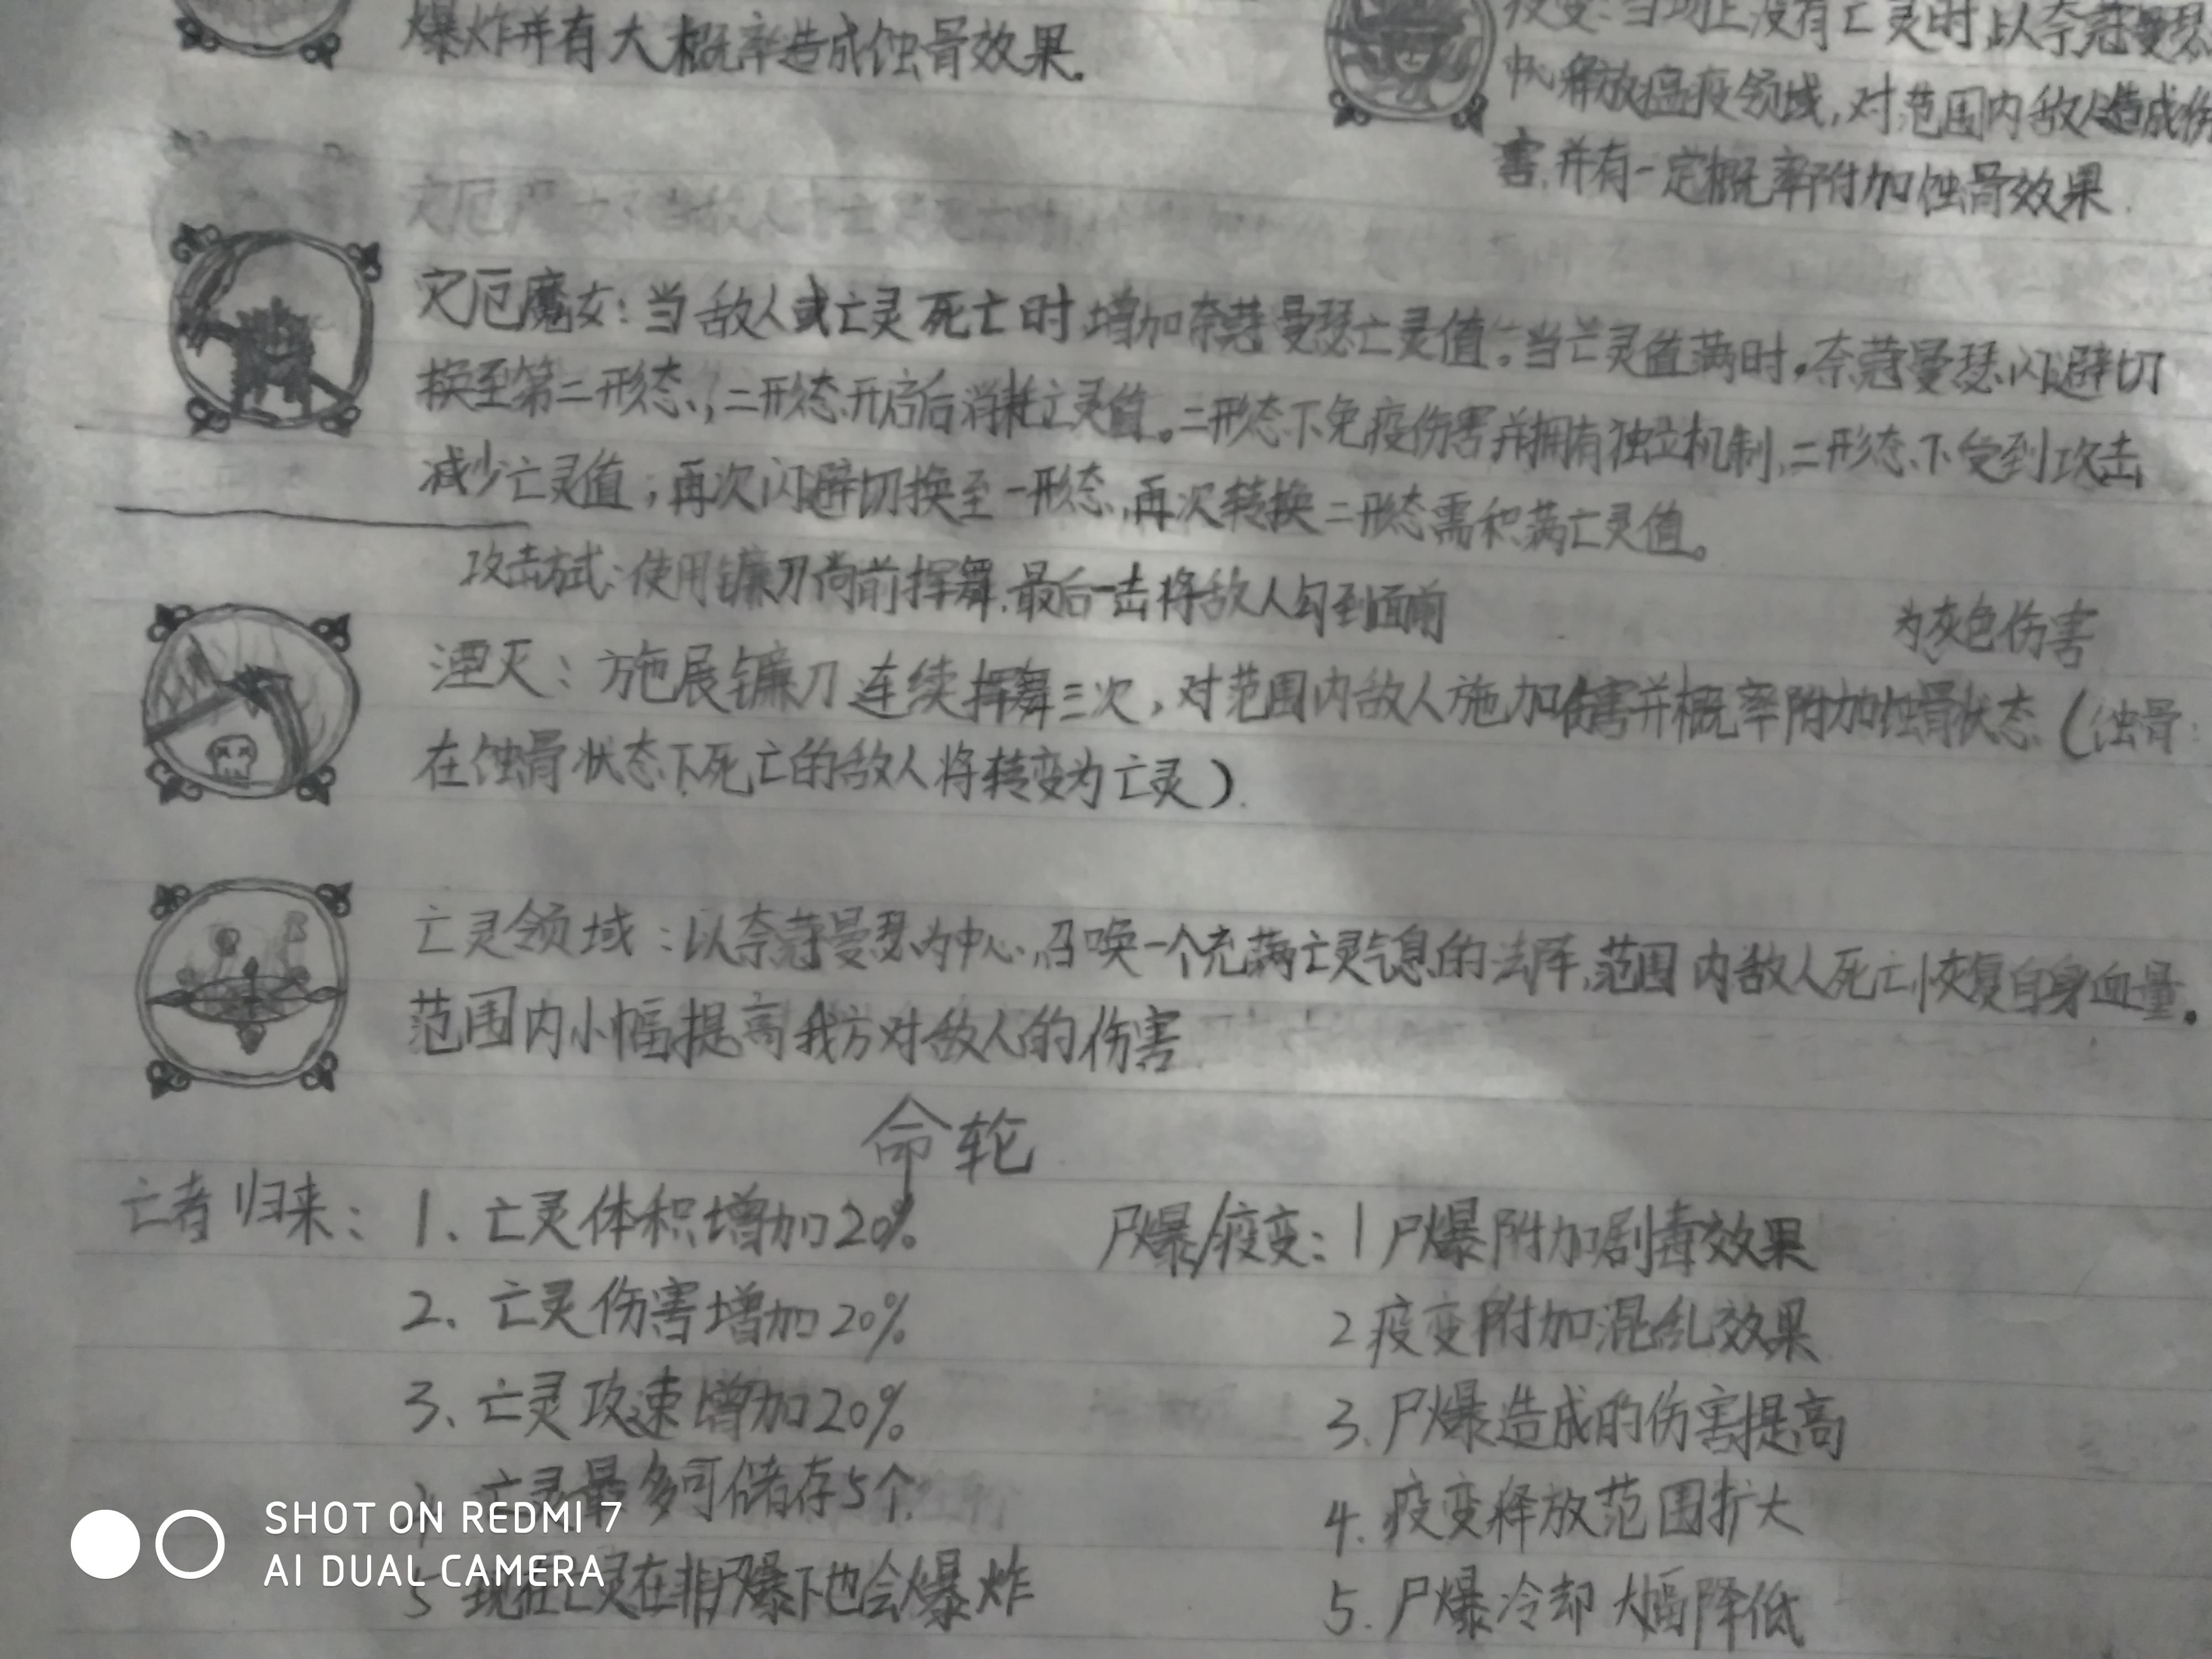 爆炸并有大概率造成蚀骨效果.
疫变:当场上没有亡灵时,以奈蔻曼瑟
释放瘟疫领域,对范围内敌人造成伤
害,并有一定概率附加蚀骨效果.
灾厄魔女:当敌人或亡灵死亡时增加奈蔻曼瑟亡灵值。当亡灵值满时,奈蔻曼瑟闪避切
换至第二形态,二形态开启后消耗亡灵值。二形态下免疫伤害并拥有独立机制,二形态下受到攻击
减少亡灵值;再次闪避切换至一形态,再次转换二形态需积满亡灵值。
攻击方式:使用镰刀向前挥舞,最后一击将敌人勾到面前
为灰色伤害
湮灭:施展镰刀连续挥舞三次,对范围内敌人施加伤害并概率附加蚀骨状态(蚀骨:
在蚀骨状态下死亡的敌人将转变为亡灵).
亡灵领域:以奈蔻曼瑟为中心,召唤一个充满亡灵气息的法阵,范围内敌人死亡恢复自身血量。
范围内小幅提高我方对敌人的伤害
命轮
亡者归来: 1、亡灵体积增加20%
2、亡灵伤害增加20%
3、亡灵攻速增加20%
亡灵最多可储存5个
5 现在亡灵在非尸爆下也会爆炸
尸爆/疫变: 1 尸爆附加剧毒效果
2 疫变附加混乱效果
3.尸爆造成的伤害提高
4.疫变释放范围扩大
5.尸爆冷却大幅降低
SHOT ON REDMI 7
AI DUAL CAMERA